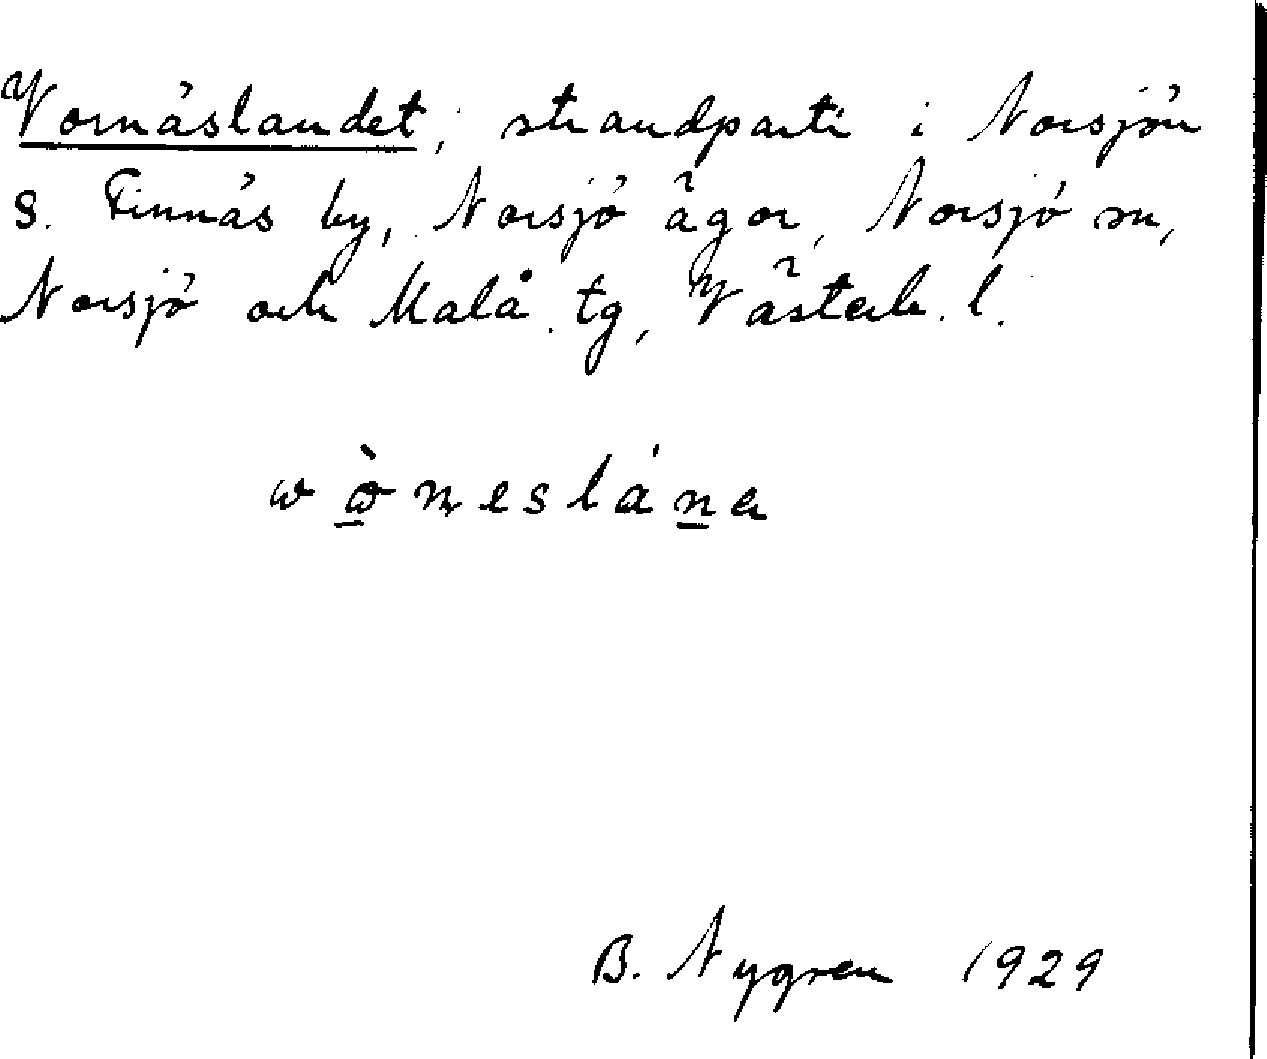 Vornäslandet, strandparti i Norsjön
s. Finnäs by, Norsjö ägor, Norsjö sn,
Norsjö och Malå tg, Västerb. l.
wòneslánα
B. Nygren 1929